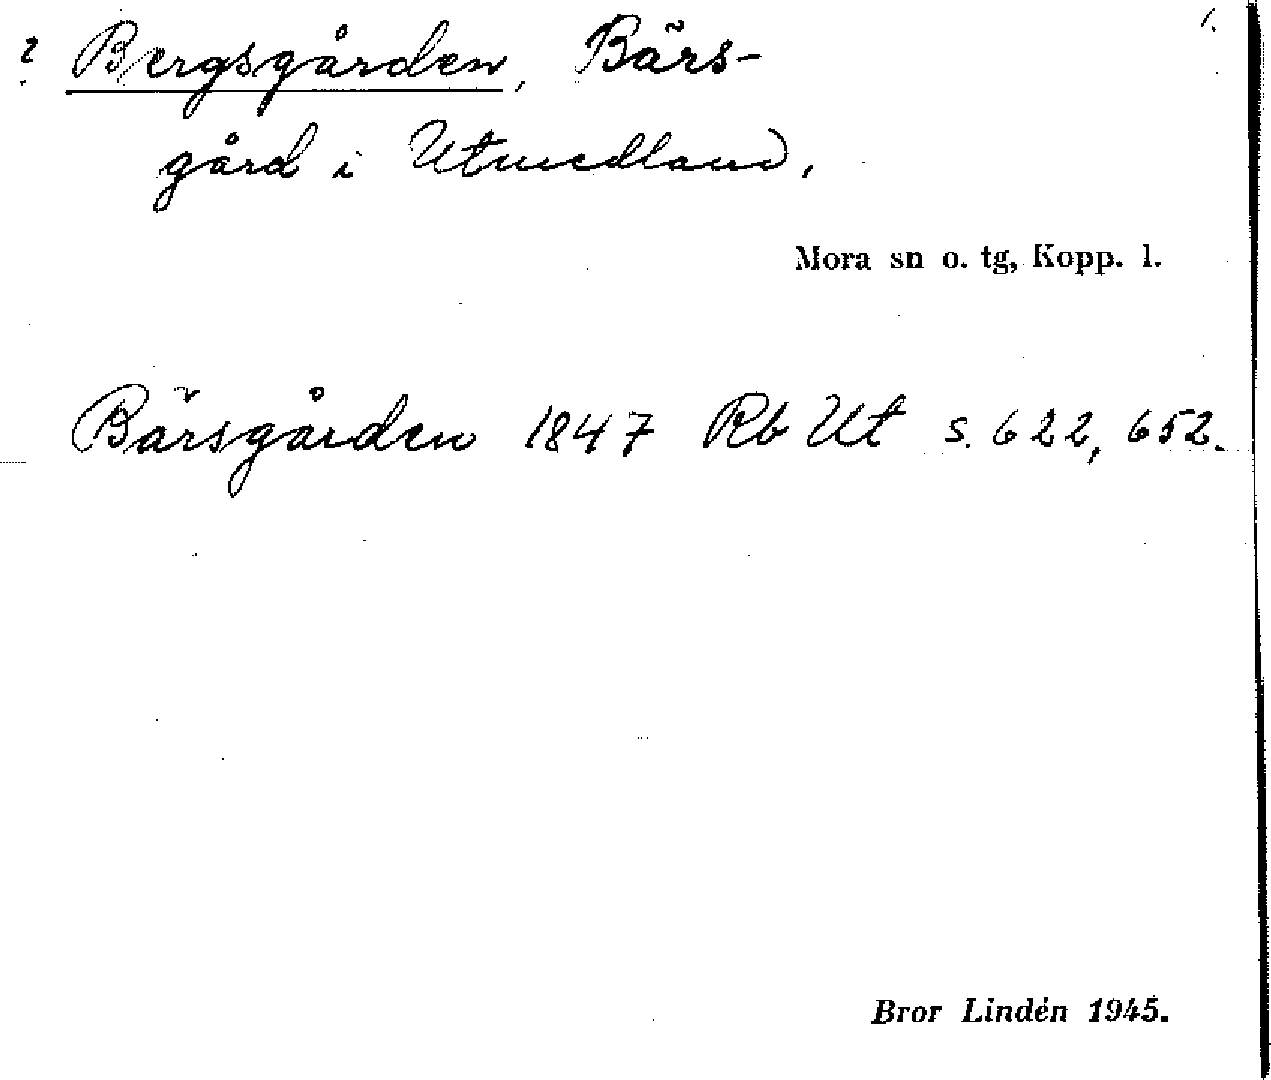 ? Bergsgården, Bärs-
gård i Utmedland,
Mora sn o. tg, Kopp. l.
Bärsgården 1847 Rb Ut s. 622, 652.
Bror Lindén 1945.